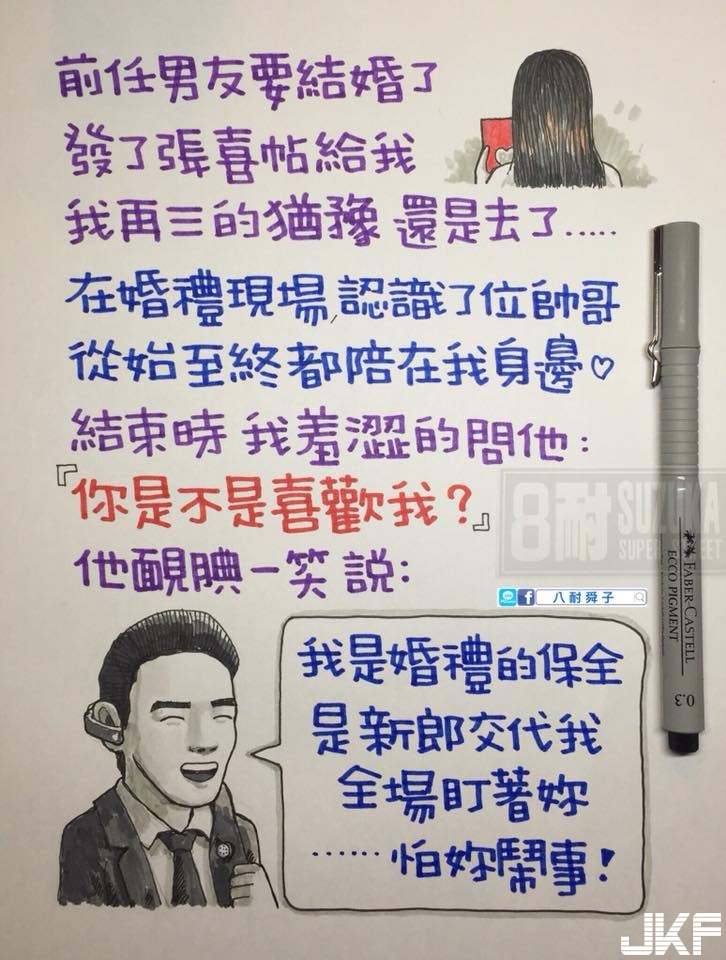 前任男友要結婚了
發了張喜帖給我
我再三的猶豫 還是去了.....
在婚禮現場,認識了位帥哥
從始至終都陪在我身邊♡
結束時 我羞澀的問他:
『你是不是喜歡我?』
他靦腆一笑說:
我是婚禮的保全
是新郎交代我
全場盯著妳
......怕妳鬧事!
8耐 SUZUKA
SUPER STREET
八耐舜子
FABER-CASTELL
ECCO PIGMENT
0.3
JKF